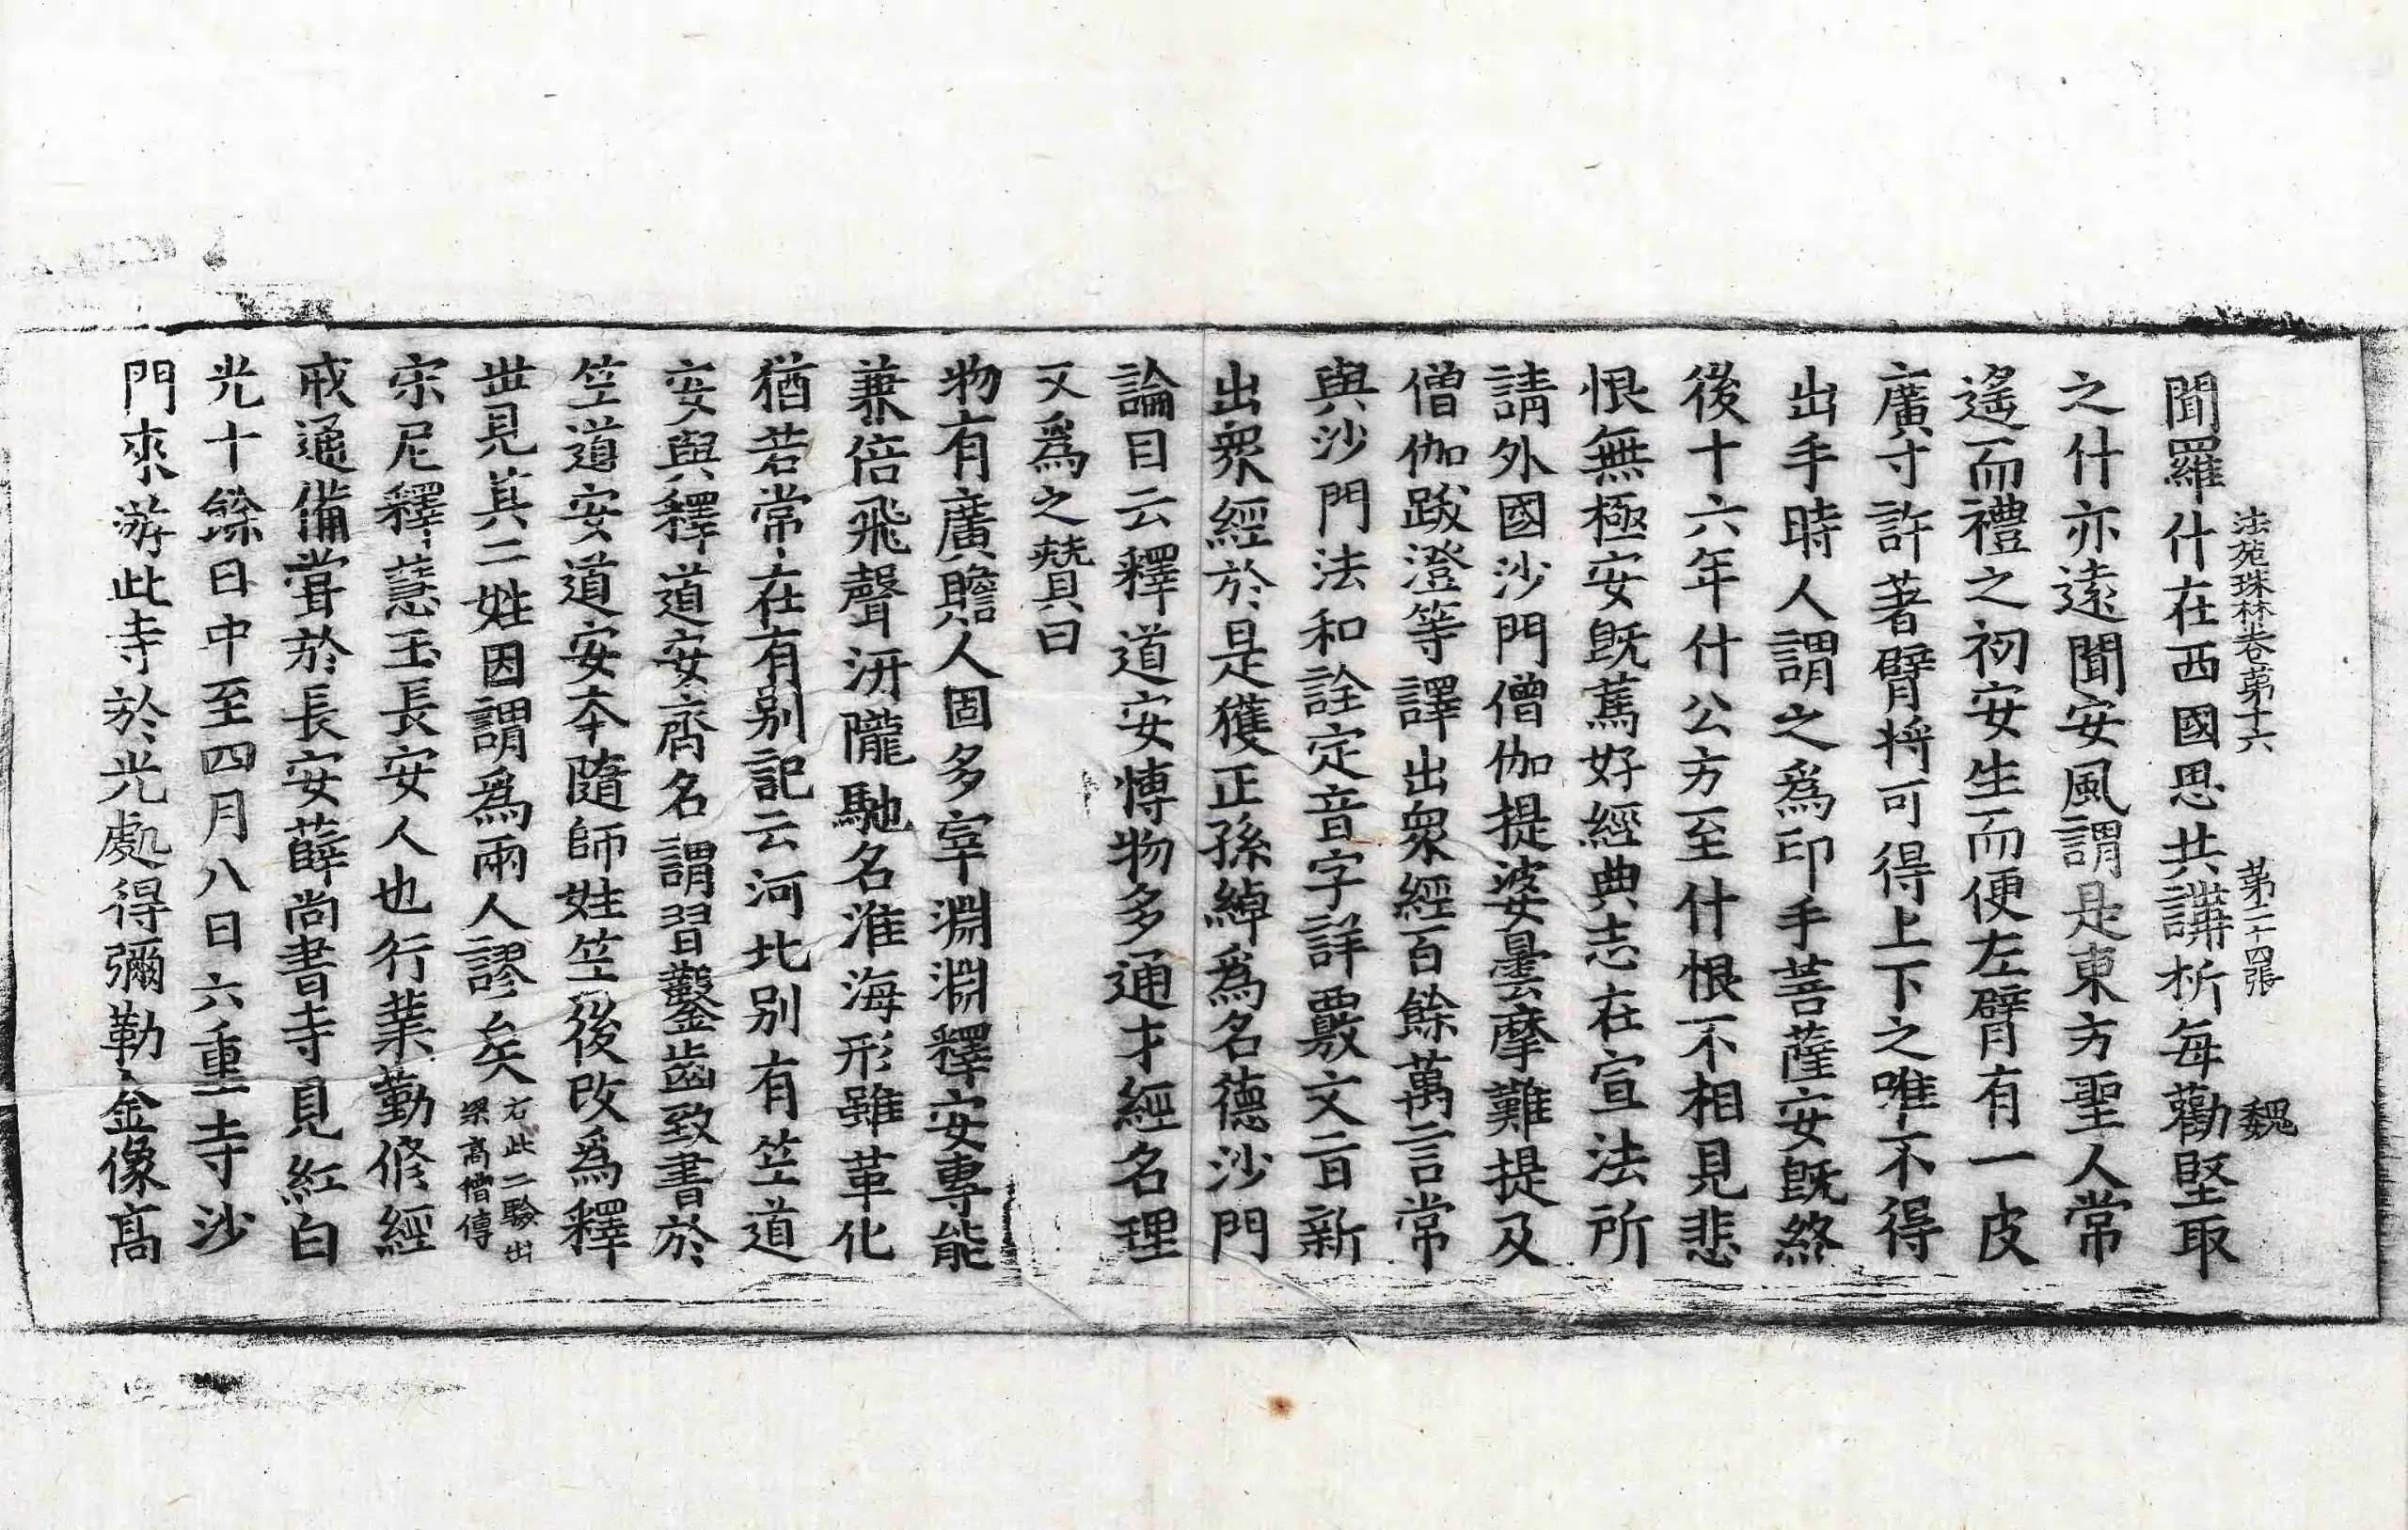 法苑珠林卷第十六 第二十四張 魏
聞羅什在西國思共講析每勸堅取
之什亦遠聞安風謂是東方聖人常
遙而禮之初安生而便左臂有一皮
廣寸許著臂捋可得上下之唯不得
出手時人謂之為印手菩薩安既終
後十六年什公方至什恨不相見悲
恨無極安既篤好經典志在宣法所
請外國沙門僧伽提婆曇摩難提及
僧伽跋澄等譯出眾經百餘萬言常
與沙門法和詮定音字詳覈文旨新
出眾經於是獲正孫綽為名德沙門
論目云釋道安博物多通才經名理
又為之贊曰
物有廣贍人固多宰淵淵釋安專能
兼倍飛聲汧隴馳名淮海形雖革化
猶若常在有別記云河北別有竺道
安與釋道安齊名謂習鑿齒致書於
竺道安道安本隨師姓竺後改為釋
世見其二姓因謂為兩人謬矣右此二驗出梁高僧傳
宋尼釋慧玉長安人也行業勤修經
戒通備嘗於長安薛尚書寺見紅白
光十餘日中至四月八日六重寺沙
門來游此寺於光處得彌勒金像高